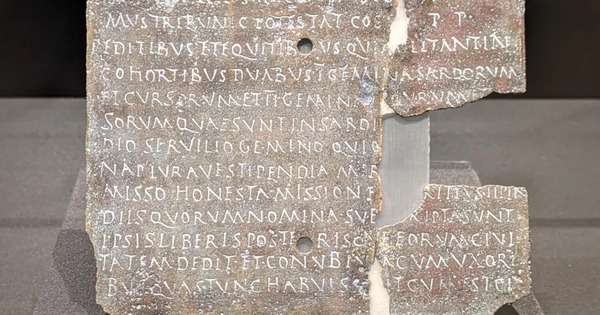 MVS TRIBVNIC POTESTAT COS P P
PEDITIBVS ET EQVITIBVS QVI MILITANT IN
COHORTIBVS DVABVS I GEMINA SARDORVM
ET CVRSORVM ET II GEMINA
SORVM QVAE SVNT IN SARD
DIO SERVILIO GEMINO QVI
NA PLVRAVE STIPENDIA MER
MISSO HONESTA MISSIONE
DIIS QVORVM NOMINA SVB RIPTA SVNT
IPSIS LIBERIS POSTERISQ EORVM CIVI
TATEM DEDIT ET CONVBIV CVM VXORI
BVS QVAS TVNC HABVISS T CVM EST CI